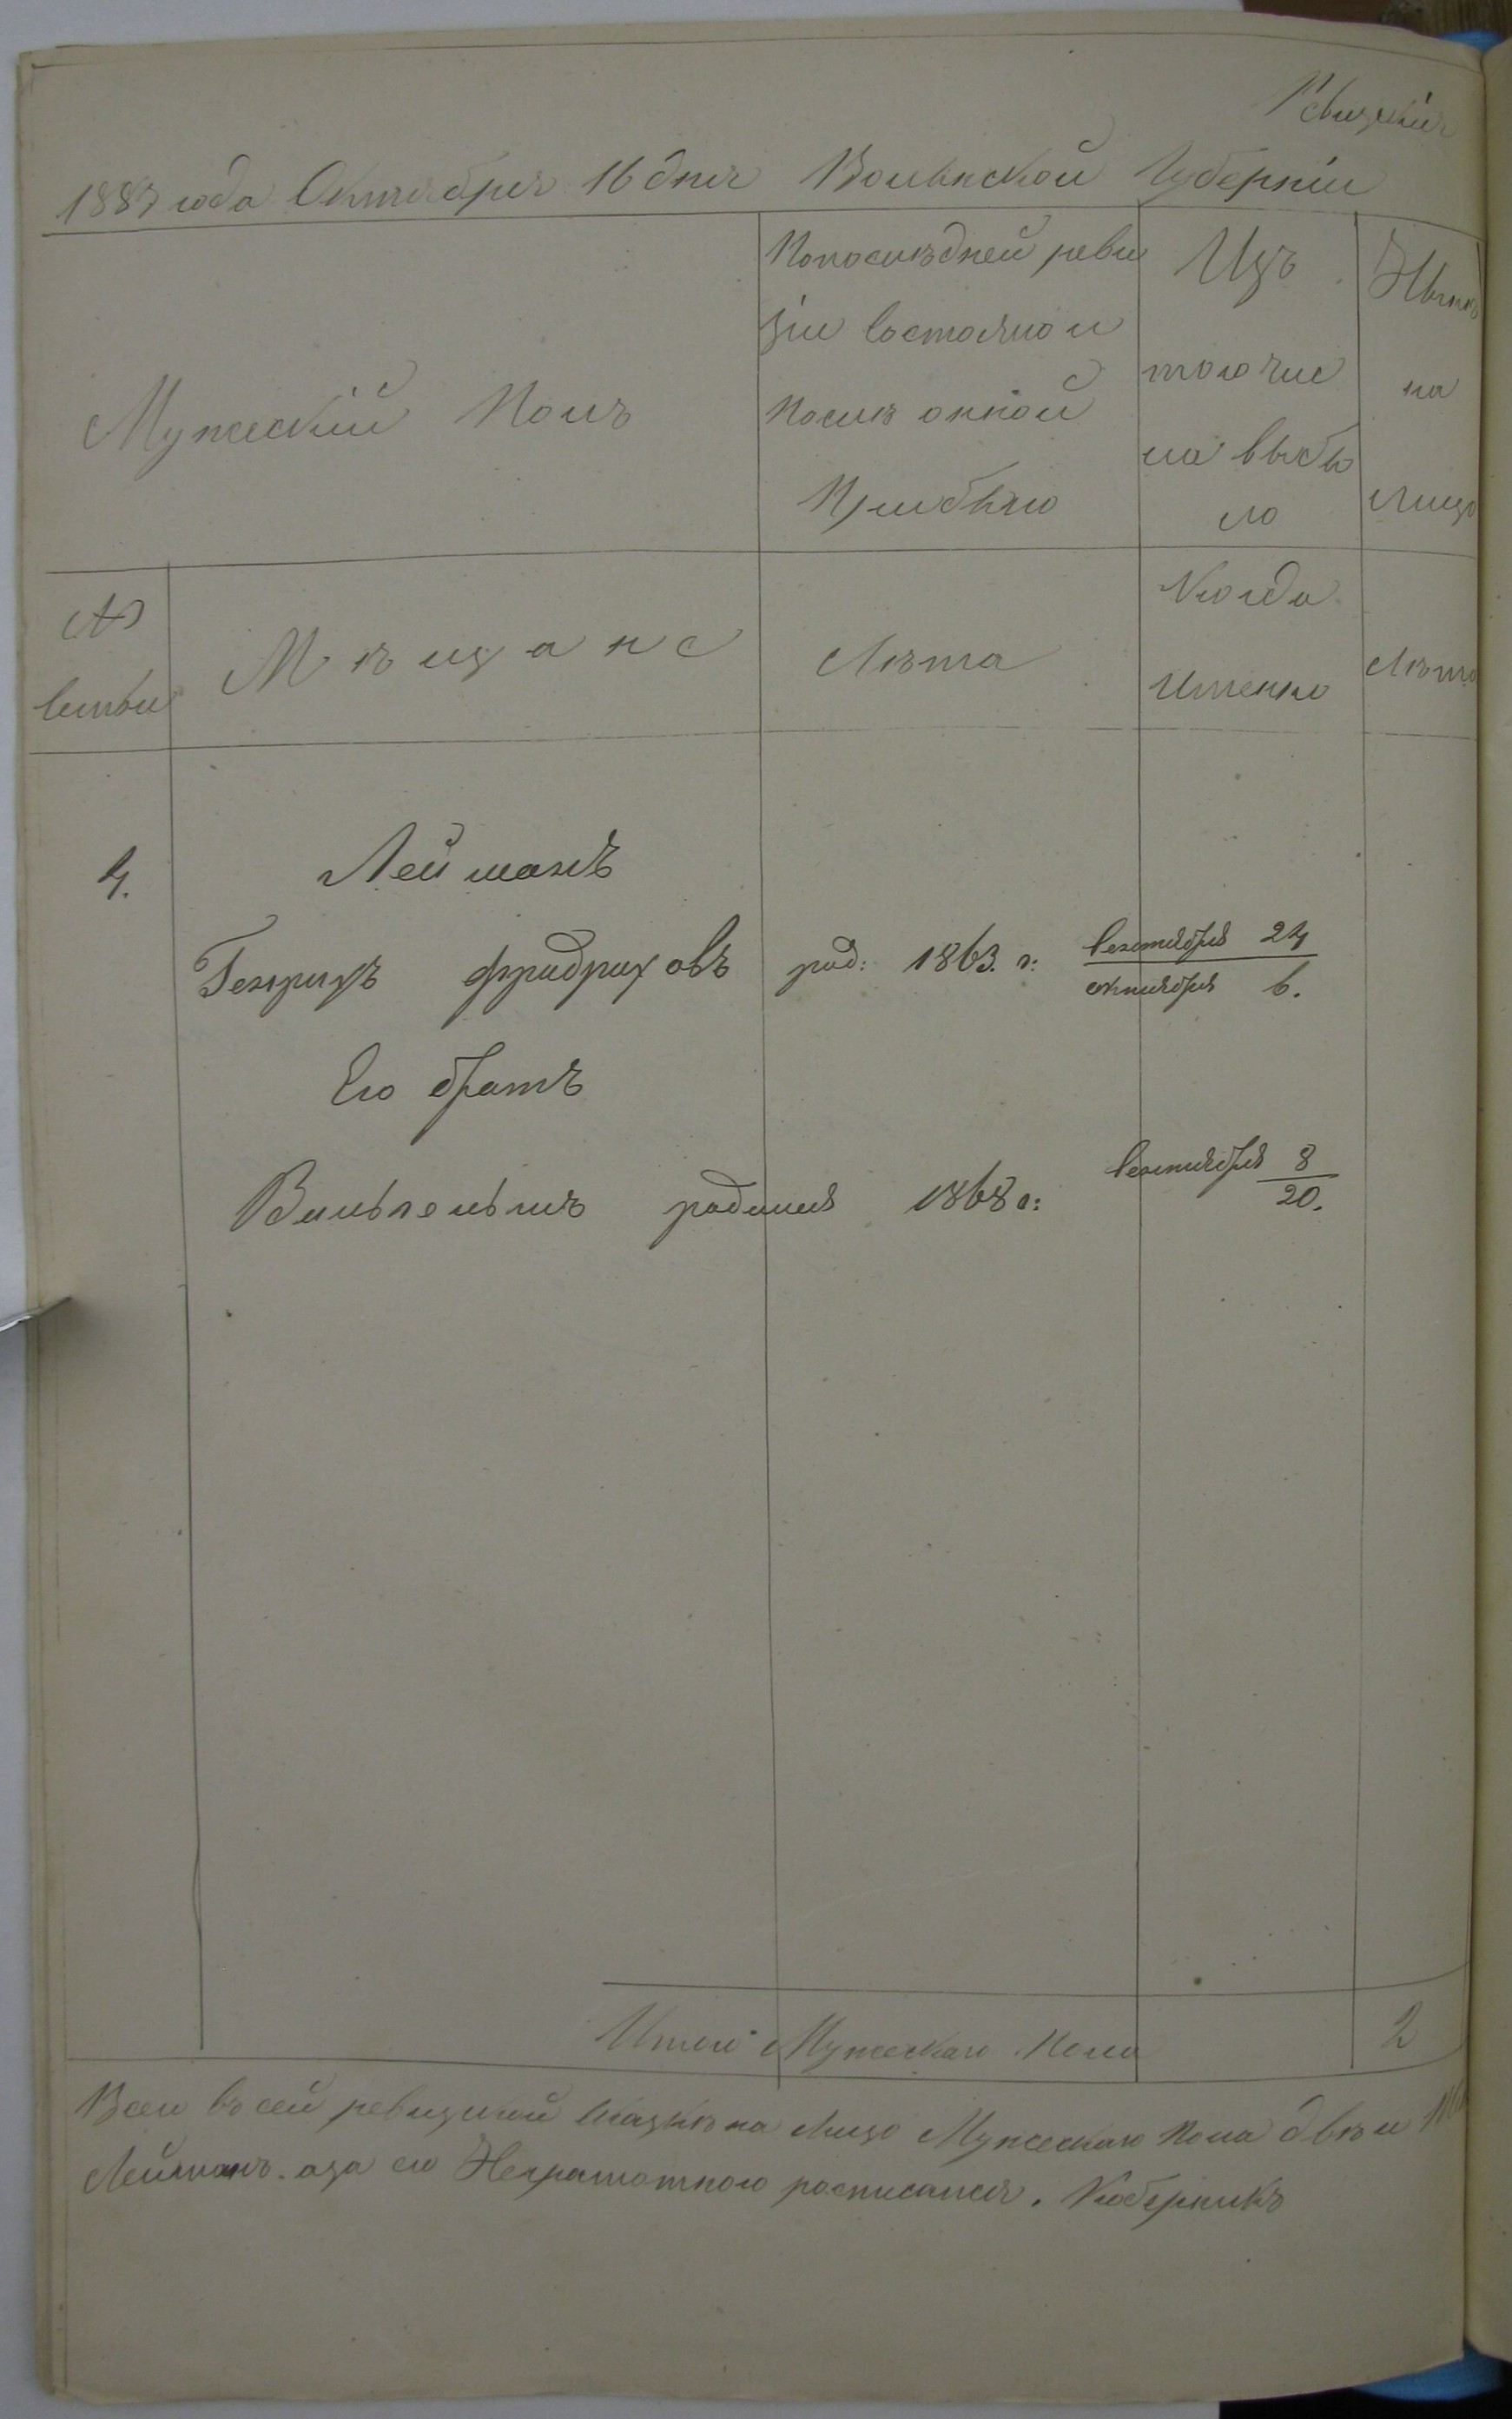 Ревизскія
1887 года Октября 16 дня Волынской Губерніи
Мужескій Полъ
Попослѣдней реви
зіи Состояло и
Послѣ онной
Прибыло
Изъ
того чис
ла выбы
ло
Нынѣ
на
Лицо
№
Семьи
Мѣщане
Лѣта
Когда
Именно
Лѣта
4.
Лейманъ
Генрихъ Фридриховъ род: 1863. г: Сентября 24
октября 6.
Его братъ
Вильгельмъ родился 1868 г: Сентября 8
20.
Итого Мужескаго Пола 2
Всего въ сей ревизской Сказкѣ на Лицо Мужескаго Пола двѣ и
Лейманъ. а за его Неграмотного росписался.